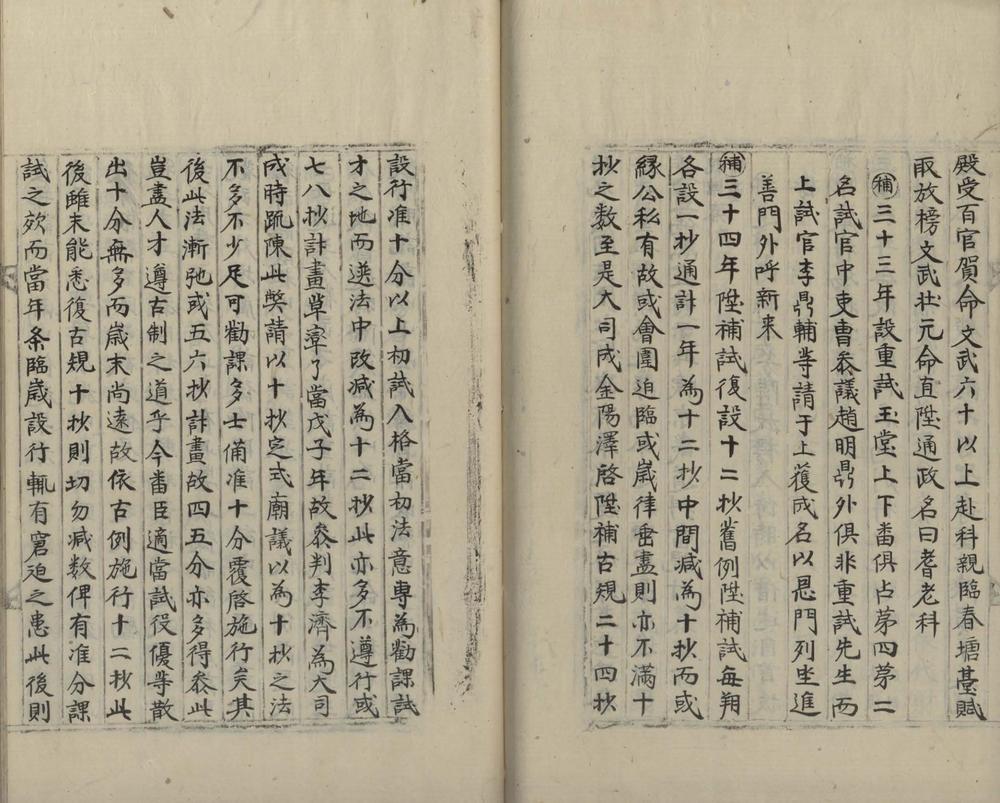 殿受百官賀命文武六十以上赴科親臨春塘䑓賦
取放榜文武壮元命直陞通政名曰耆老科
補三十三年設重試玉堂上下畨俱占苐四苐二
名試官中吏曹叅議趙明鼎外俱非重試先生而
上試官李鼎輔䓁請于上獲成名以恩門列坐進
善門外呼新来
補三十四年陞補試復設十二抄舊例陞補試每朔
各設一抄通計一年為十二抄中間减為十抄而或
縁公私有故或會圍迫臨或歲律垂盡則亦不滿十
抄之数至是大司成金陽澤啓陞補古規二十四抄
設行准十分以上初試入格當初法意專為勸課試
才之地而選法中改减為十二抄此亦多不遵行或
七八抄計畫草率了當戊子年故叅判李濟為大司
成時疏陳此弊請以十抄定式廟議以為十抄之法
不多不少足可勸課多士備准十分覆啓施行矣其
後此法漸弛或五六抄計畫故四五分亦多得叅此
豈盡人才遵古制之道乎今畨臣適當試役優䓁散
出十分無多而歲末尚遠故依古例施行十二抄此
後雖未能悉復古規十抄則切勿减数俾有准分課
試之效而當年条臨歲設行輒有窘迫之患此後則